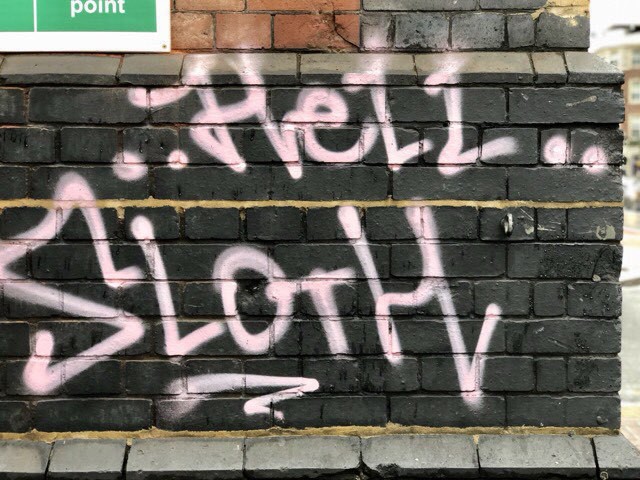 point
..Hell..
SLOTH